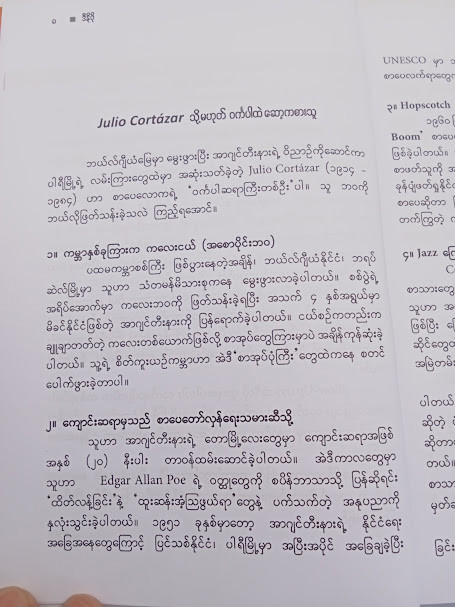 ၈
Julio Cortázar သို့မဟုတ် ဝင်္ကပါထဲ ဆော့ကစားသူ
ဘယ်လ်ဂျီယံမြေမှာ မွေးဖွားပြီး အာဂျင်တီးနားရဲ့ ဝိညာဉ်ကိုဆောင်ကာ
ပါရီမြို့ရဲ့ လမ်းကြားတွေထဲမှာ အဆုံးသတ်ခဲ့တဲ့ Julio Cortázar (၁၉၁၄ -
၁၉၈၄) ဟာ စာပေလောကရဲ့ "ဝင်္ကပါဆရာကြီးတစ်ဦး" ပါ။ သူ့ ဘဝကို
ဘယ်လိုဖြတ်သန်းခဲ့သလဲ ကြည့်ရအောင်။
၁။ ကမ္ဘာနှစ်ခုကြားက ကလေးငယ် (အစောပိုင်းဘဝ)
ပထမကမ္ဘာစစ်ကြီး ဖြစ်ပွားနေတဲ့အချိန်၊ ဘယ်လ်ဂျီယံနိုင်ငံ၊ ဘရပ်
ဆဲလ်မြို့မှာ သူဟာ သံတမန်မိသားစုကနေ မွေးဖွားလာခဲ့ပါတယ်။ စစ်ပွဲရဲ့
အရိပ်အောက်မှာ ကလေးဘဝကို ဖြတ်သန်းခဲ့ရပြီး အသက် ၄ နှစ်အရွယ်မှာ
မိခင်နိုင်ငံဖြစ်တဲ့ အာဂျင်တီးနားကို ပြန်ရောက်ခဲ့ပါတယ်။ ငယ်စဉ်ကတည်းက
ချူချာတတ်တဲ့ ကလေးတစ်ယောက်ဖြစ်လို့ စာအုပ်တွေကြားမှာပဲ အချိန်ကုန်ဆုံးခဲ့
ပါတယ်။ သူ့ရဲ့ စိတ်ကူးယဉ်ကမ္ဘာဟာ အဲဒီ "စာအုပ်ပုံကြီး" တွေထဲကနေ စတင်
ပေါက်ဖွားခဲ့တာပါ။
၂။ ကျောင်းဆရာမှသည် စာပေတော်လှန်ရေးသမားဆီသို့
သူဟာ အာဂျင်တီးနားရဲ့ တောမြို့လေးတွေမှာ ကျောင်းဆရာအဖြစ်
အနှစ် (၂၀) နီးပါး တာဝန်ထမ်းဆောင်ခဲ့ပါတယ်။ အဲဒီကာလတွေမှာ
သူဟာ Edgar Allan Poe ရဲ့ ဝတ္ထုတွေကို စပိန်ဘာသာသို့ ပြန်ဆိုရင်း
"ထိတ်လန့်ခြင်း" နဲ့ "ထူးဆန်းအံ့ဩဖွယ်ရာ" တွေနဲ့ ပက်သက်တဲ့ အနုပညာကို
နှလုံးသွင်းခဲ့ပါတယ်။ ၁၉၅၁ ခုနှစ်မှာတော့ အာဂျင်တီးနားရဲ့ နိုင်ငံရေး
အခြေအနေတွေကြောင့် ပြင်သစ်နိုင်ငံ၊ ပါရီမြို့မှာ အပြီးအပိုင် အခြေချခဲ့ပြီး
UNESCO မှာ
စာပေလက်ရာတွေ
၃။ Hopscotch
၁၉၆၀
Boom" စာပေ
ဖြစ်ခဲ့ပါတယ်။
စာဖတ်သူကို
စာပေဆိုတာ
တက်ကြွတဲ့
၄။ Jazz
စာသားတွေ
သူဟာ
ဖြစ်ပြီး
ဆိုင်တွေ
အမြဲတမ်း
ပါတယ်
ဆိုတဲ့
ဆိုတာ
တယ်။
စာသာ
မှတ်
ခြင်း